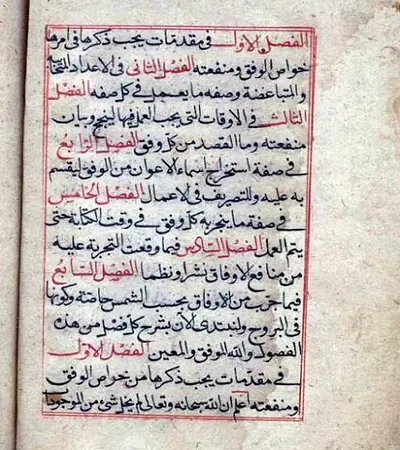 الفصل الاول في مقدمات يجب ذكرها في امرها
خواص الوفق ومنفعته الفصل الثاني في الاعداد المتحابه
والمتباغضة وصفه ما يعمل في كل صفه الفصل
الثالث في الاوقات التي يجب العمل فيها لينجح وبيان
منفعته وما القصد من كل وفق الفصل الرابع
في صفة استخراج اسماء الاعوان من الوفق ليقسم
به عليه والتصريف في الاعمال الفصل الخامس
في صفة ما ينجر به كل وفق في وقت الكتابة حتى
يتم العمل الفصل السادس فيما وقعت التجربة عليه
من منافع الاوفاق نثرا ونظما الفصل السابع
فيما جرب من الاوفاق بحسب الشمس خاصة وكونها
في البروج ولنبتدي الان بشرح كل فصل من هذه
الفصول والله الموفق والمعين الفصل الاول
في مقدمات يجب ذكرها من خواص الوفق
ومنفعته اعلم ان الله سبحانه وتعالى لم يخل شئ من الموجودات